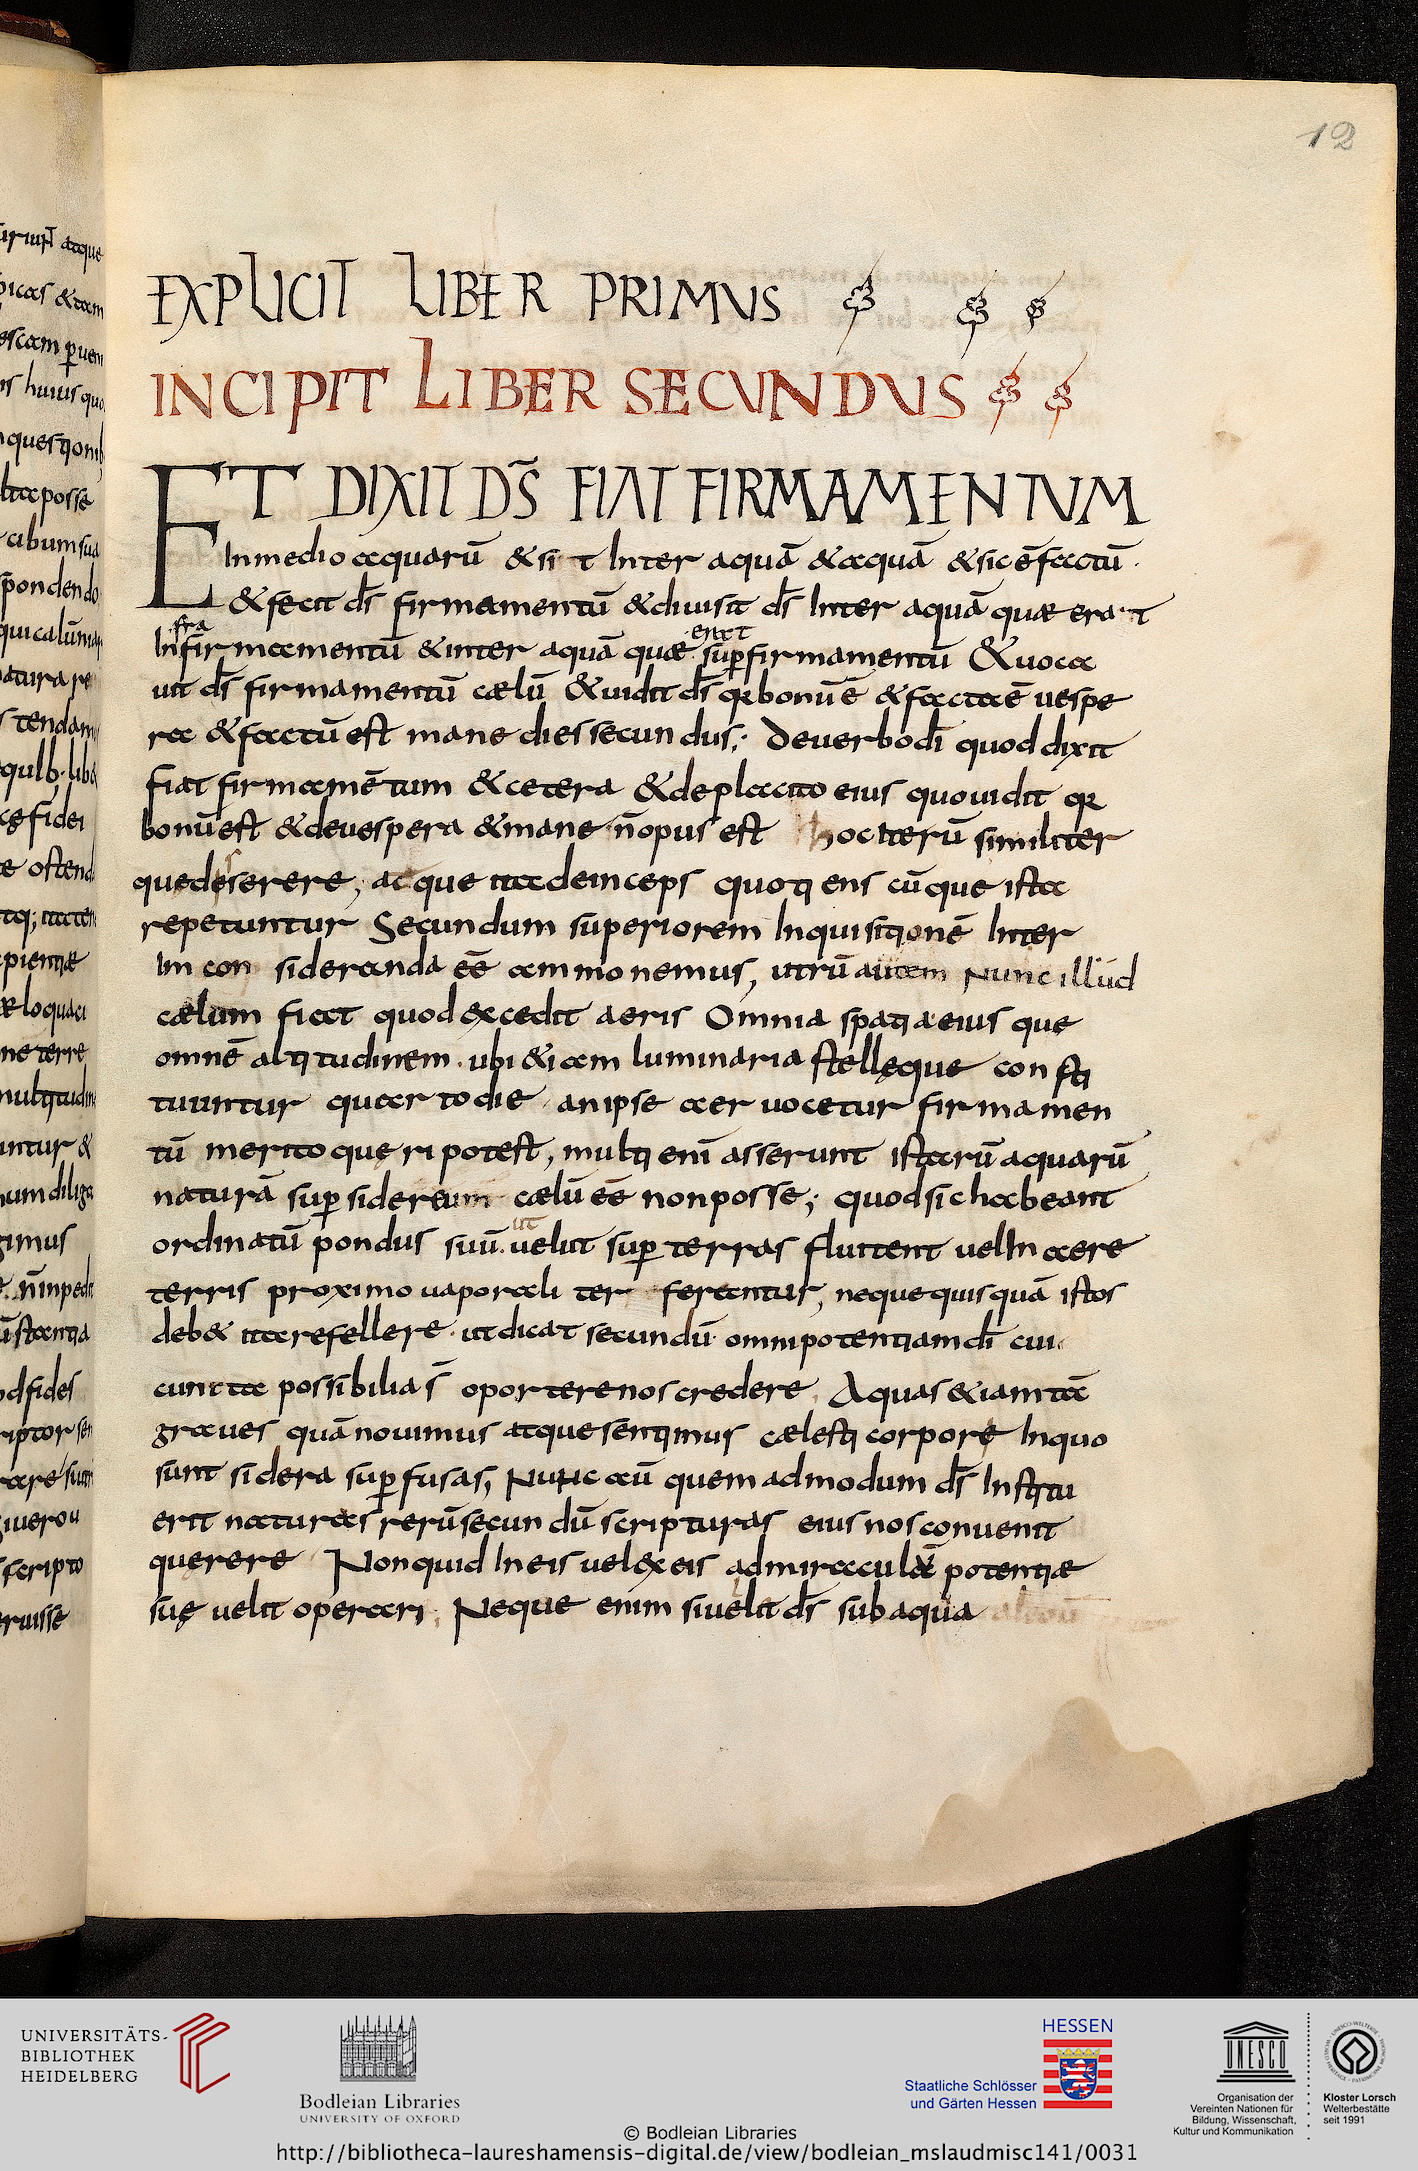 12
EXPLICIT LIBER PRIMUS
INCIPIT LIBER SECUNDUS
ET DIXIT DS̄ FIAT FIRMAMENTUM
In medio aquarū & sit Inter aquā & aquā & sic ē factū·
& fecit dš firmamentū & diuisit dš Inter aquā quæ erat
fra erat
In firmamentū & inter aquā quæ sup firmamentū & uoca
uit dš firmamentū cælū & uidit dš qr bonū ē & facta ē uespe
ra & factū est mane dies secundus; De uerbo dī quod dixit
fiat firmamētum & cetera & de placito eius quo uidit qr
bonū est & de uespera & mane n̄ opus est hoc iterū similiter
que de serere, atque ita deinceps quotiens cūque ista
repetuntur Secundum superiorem Inquisitionē Inter
Im con sideranda eē ammonemus, utrū autem Nunc illud
cælum fiat quod excedit aeris Omnia spatia eius que
omnē altitudinem· ubi & iam luminaria stellęque consti
tuuntur quarto die· an ipse aer uocetur firmamen
tū merito queri potest, multi enī asserunt istarū aquarū
naturā sup sidereum cælū eē non posse; quod sic habeant
ut
ordinatū pondus suū· uelut sup terras fluitent uel In aere
terris proximo uaporali ter ferantur, neque quisquā istos
deb& ita refellere· ut dicat secundū omnipotentiam dī cui
cuncta possibilia s̄ oportere nos credere Aquas & iam tā
graues quā nouimus atque sentimus cælesti corpore In quo
sunt sidera sup fusas, Nunc aū quemadmodum dš Institu
erit naturas rerū secundū scripturas eius nos conuenit
querere Non quid In eis uel ex eis ad miraculū potentiæ
suę uelit operari; Neque enim si uelit dš sub aqua
UNIVERSITÄTS-
BIBLIOTHEK
HEIDELBERG
Bodleian Libraries
UNIVERSITY OF OXFORD
HESSEN
Staatliche Schlösser
und Gärten Hessen
UNESCO
Organisation der
Vereinten Nationen für
Bildung, Wissenschaft,
Kultur und Kommunikation
Kloster Lorsch
Welterbestätte
seit 1991
© Bodleian Libraries
http://bibliotheca-laureshamensis-digital.de/view/bodleian_mslaudmisc141/0031